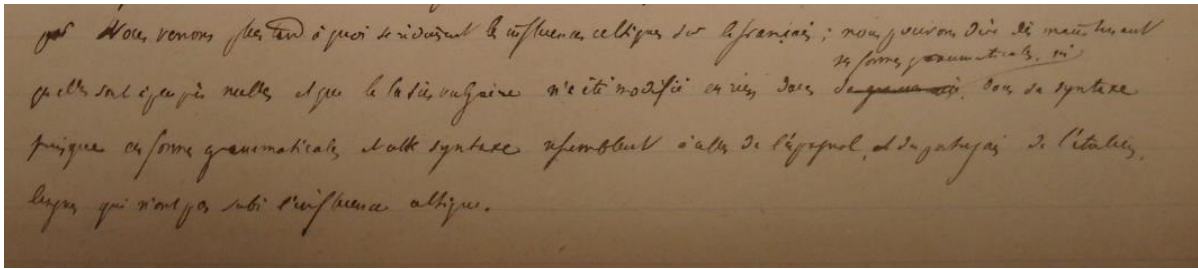 Nous verrons plus tard à quoi se réduisent les influences celtiques sur le français ; nous pouvons dire dès maintenant
ses formes grammaticales, ni
qu'elles sont à peu près nulles et que le latin vulgaire n'a été modifié en rien dans dans sa syntaxe
puisque ces formes grammaticales et cette syntaxe ressemblent à celles de l'espagnol, et du portugais de l'italien,
langues qui n'ont pas subi l'influence celtique.